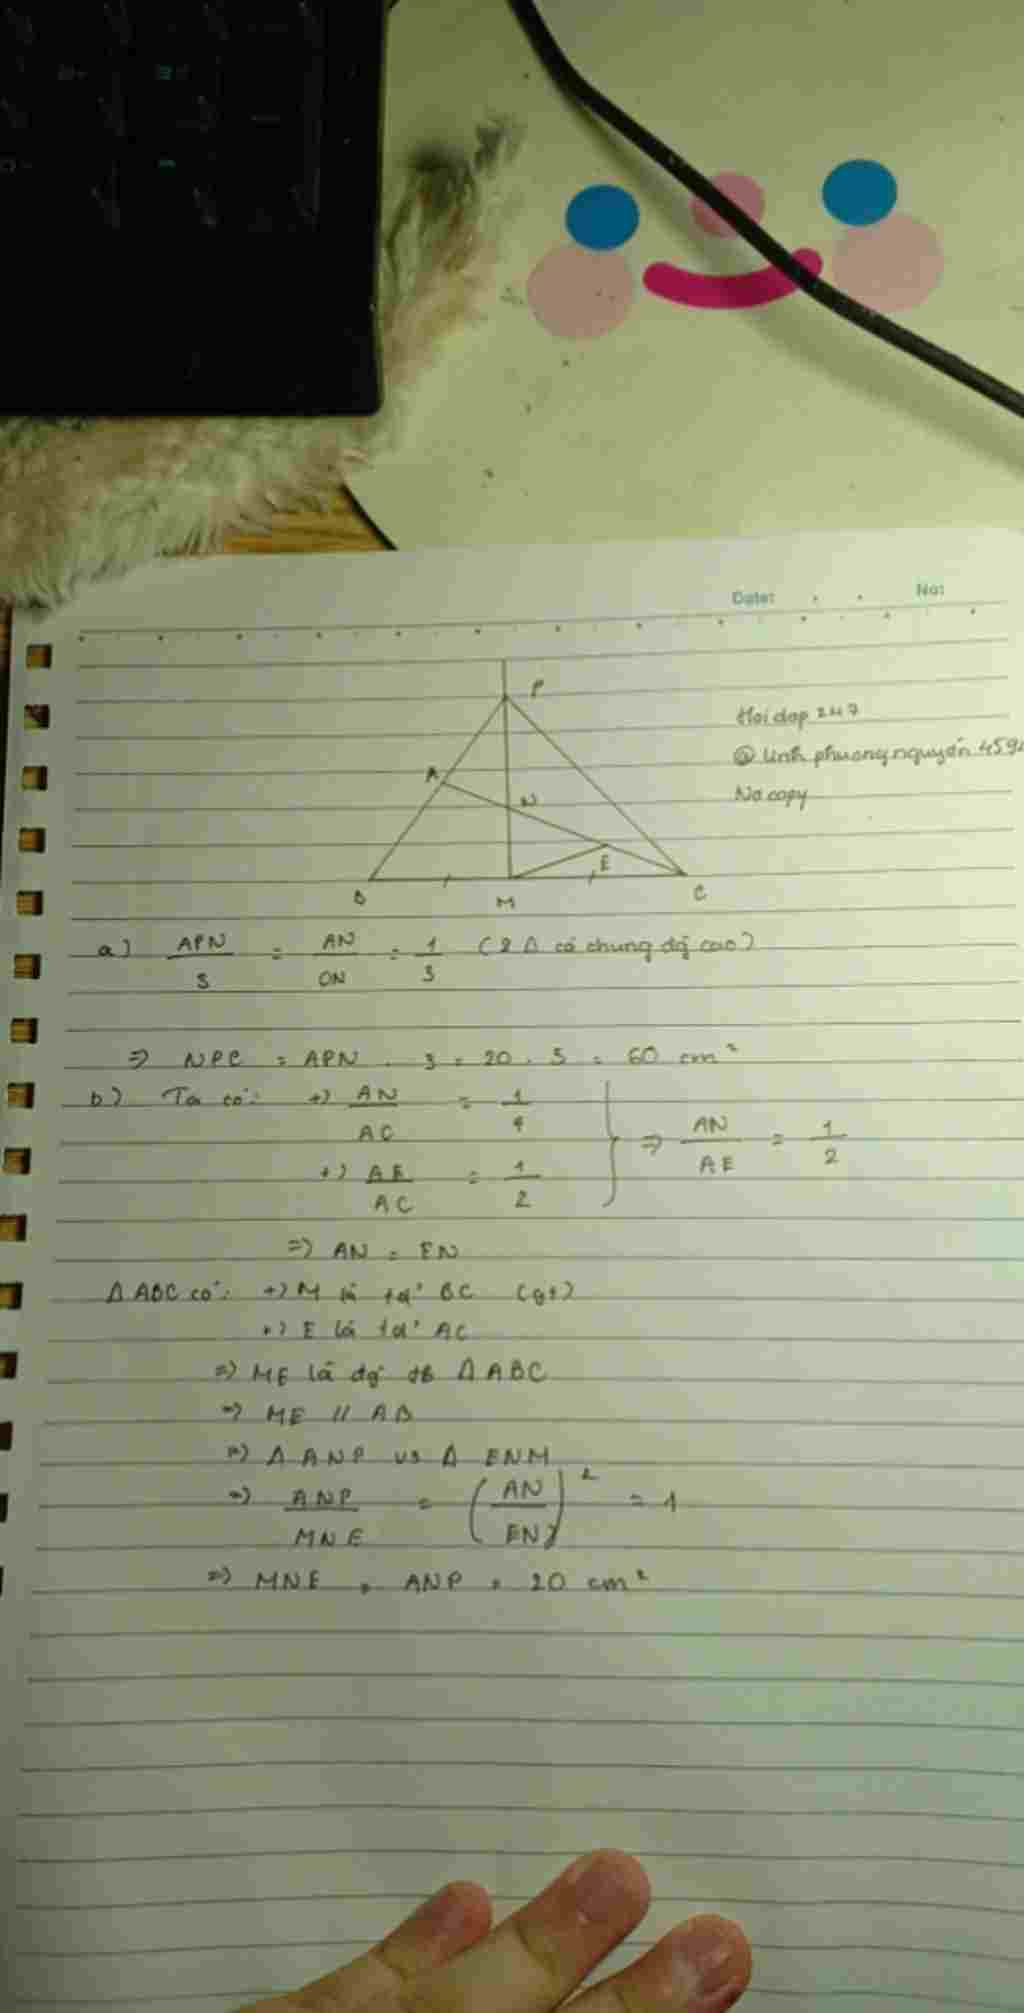 Date: No:
P
Hoidap 247
@ linh phuong nguyen 4594
No copy
A
N
E
B M C
a) APN / S = AN / ON = 1 / 3 (2 Δ có chung đg cao)
=> NPC = APN . 3 = 20 . 3 = 60 cm²
b) Ta có: +) AN / AC = 1 / 4
+) AE / AC = 1 / 2 } => AN / AE = 1 / 2
=> AN = EN
Δ ABC có: +) M là tđ' BC (gt)
+) E là tđ' AC
=> ME là đg tb Δ ABC
=> ME // AB
=> Δ ANP vs Δ ENM
=> ANP / MNE = (AN / EN)² = 1
=> MNE = ANP = 20 cm²